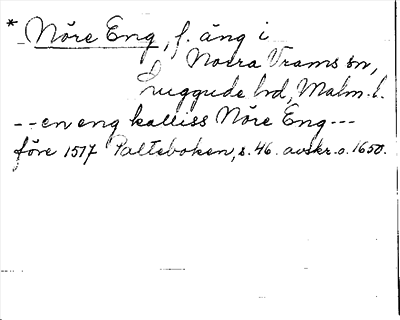 * Nöre Eng, f. äng i
Norra Vrams sn,
Luggude hd, Malm. l.
-- en eng kalliss Nöre Eng ---
före 1517 Palteboken, s. 46. avskr. o. 1650.